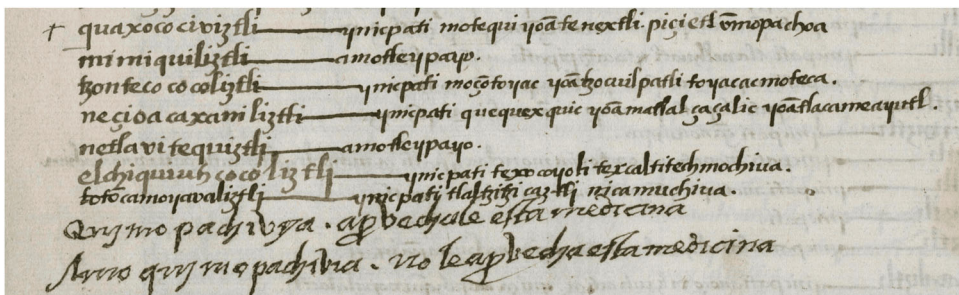 † quaxocociviztli ynicpati motequi yoã tenextli piçietl õmopachoa
mimiquiliztli amotleypayo.
tzonteco cocoliztli ynicpati moçotoyac yoã tzocuilpatli toyacacmoteca.
neçioa caxaniliztli ynicpati quequexquic yoã matlal çaçalic yoã tlacameayutl.
netlavitequiztli amotleypayo.
elchiquiuh cocoliztlj ynicpati texoxoyoli texcaltitechmochiva.
totõcamoyavaliztlj ynicpatj tlaltzitzicaztlj nicamuchiva.
Quimopachivya. apvechale esta medicina
Amo quimopachivia. no le apvecha esta medicina